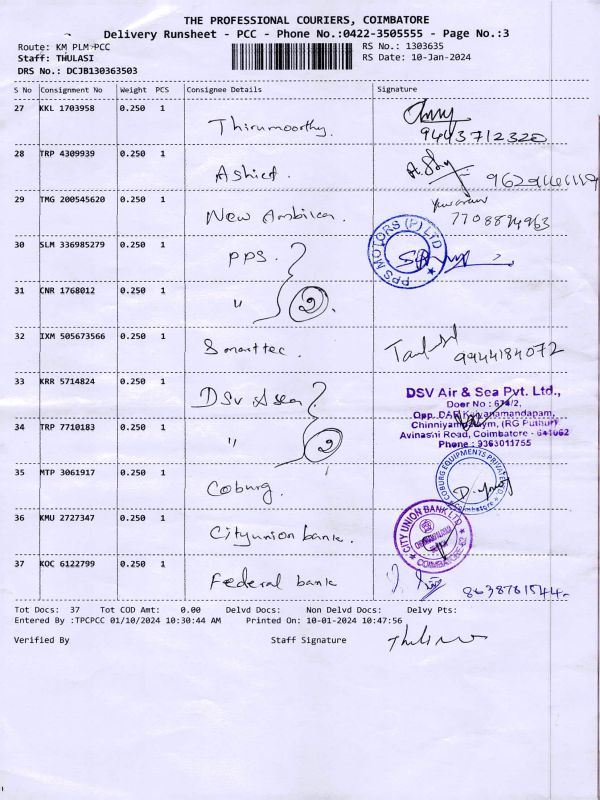 THE PROFESSIONAL COURIERS, COIMBATORE
Delivery Runsheet - PCC - Phone No.:0422-3505555 - Page No.:3
Route: KM PLM-PCC RS No.: 1303635
Staff: THULASI RS Date: 10-Jan-2024
DRS No.: DCJB130363503
S No Consignment No Weight PCS Consignee Details Signature
27 KKL 1703958 0.250 1 Thirumoorthy.
9443712320
28 TRP 4309939 0.250 1
29 TMG 200545620 0.250 1 New
7708894963
30 SLM 336985279 0.250 1 PPS. PPS MOTORS (P) LTD
31 CNR 1768012 0.250 1 " 2
32 IXM 505673566 0.250 1 Smarttec. 9944184072
33 KRR 5714824 0.250 1 DSV & Sea DSV Air & Sea Pvt. Ltd.,
Door No : 674/2,
Opp. Kalyanamandapam,
34 TRP 7710183 0.250 1 " 2 (RG Puthur)
Avinashi Road, Coimbatore - 641062
Phone : 9363011755
35 MTP 3061917 0.250 1 Coburg. COBURG EQUIPMENTS PRIVATE Coimbatore
36 KMU 2727347 0.250 1 Cityunion bank. CITY UNION BANK LTD COIMBATORE
37 KOC 6122799 0.250 1 Federal bank
8638761544
Tot Docs: 37 Tot COD Amt: 0.00 Delvd Docs: Non Delvd Docs: Delvy Pts:
Entered By :TPCPCC 01/10/2024 10:30:44 AM Printed On: 10-01-2024 10:47:56
Verified By Staff Signature